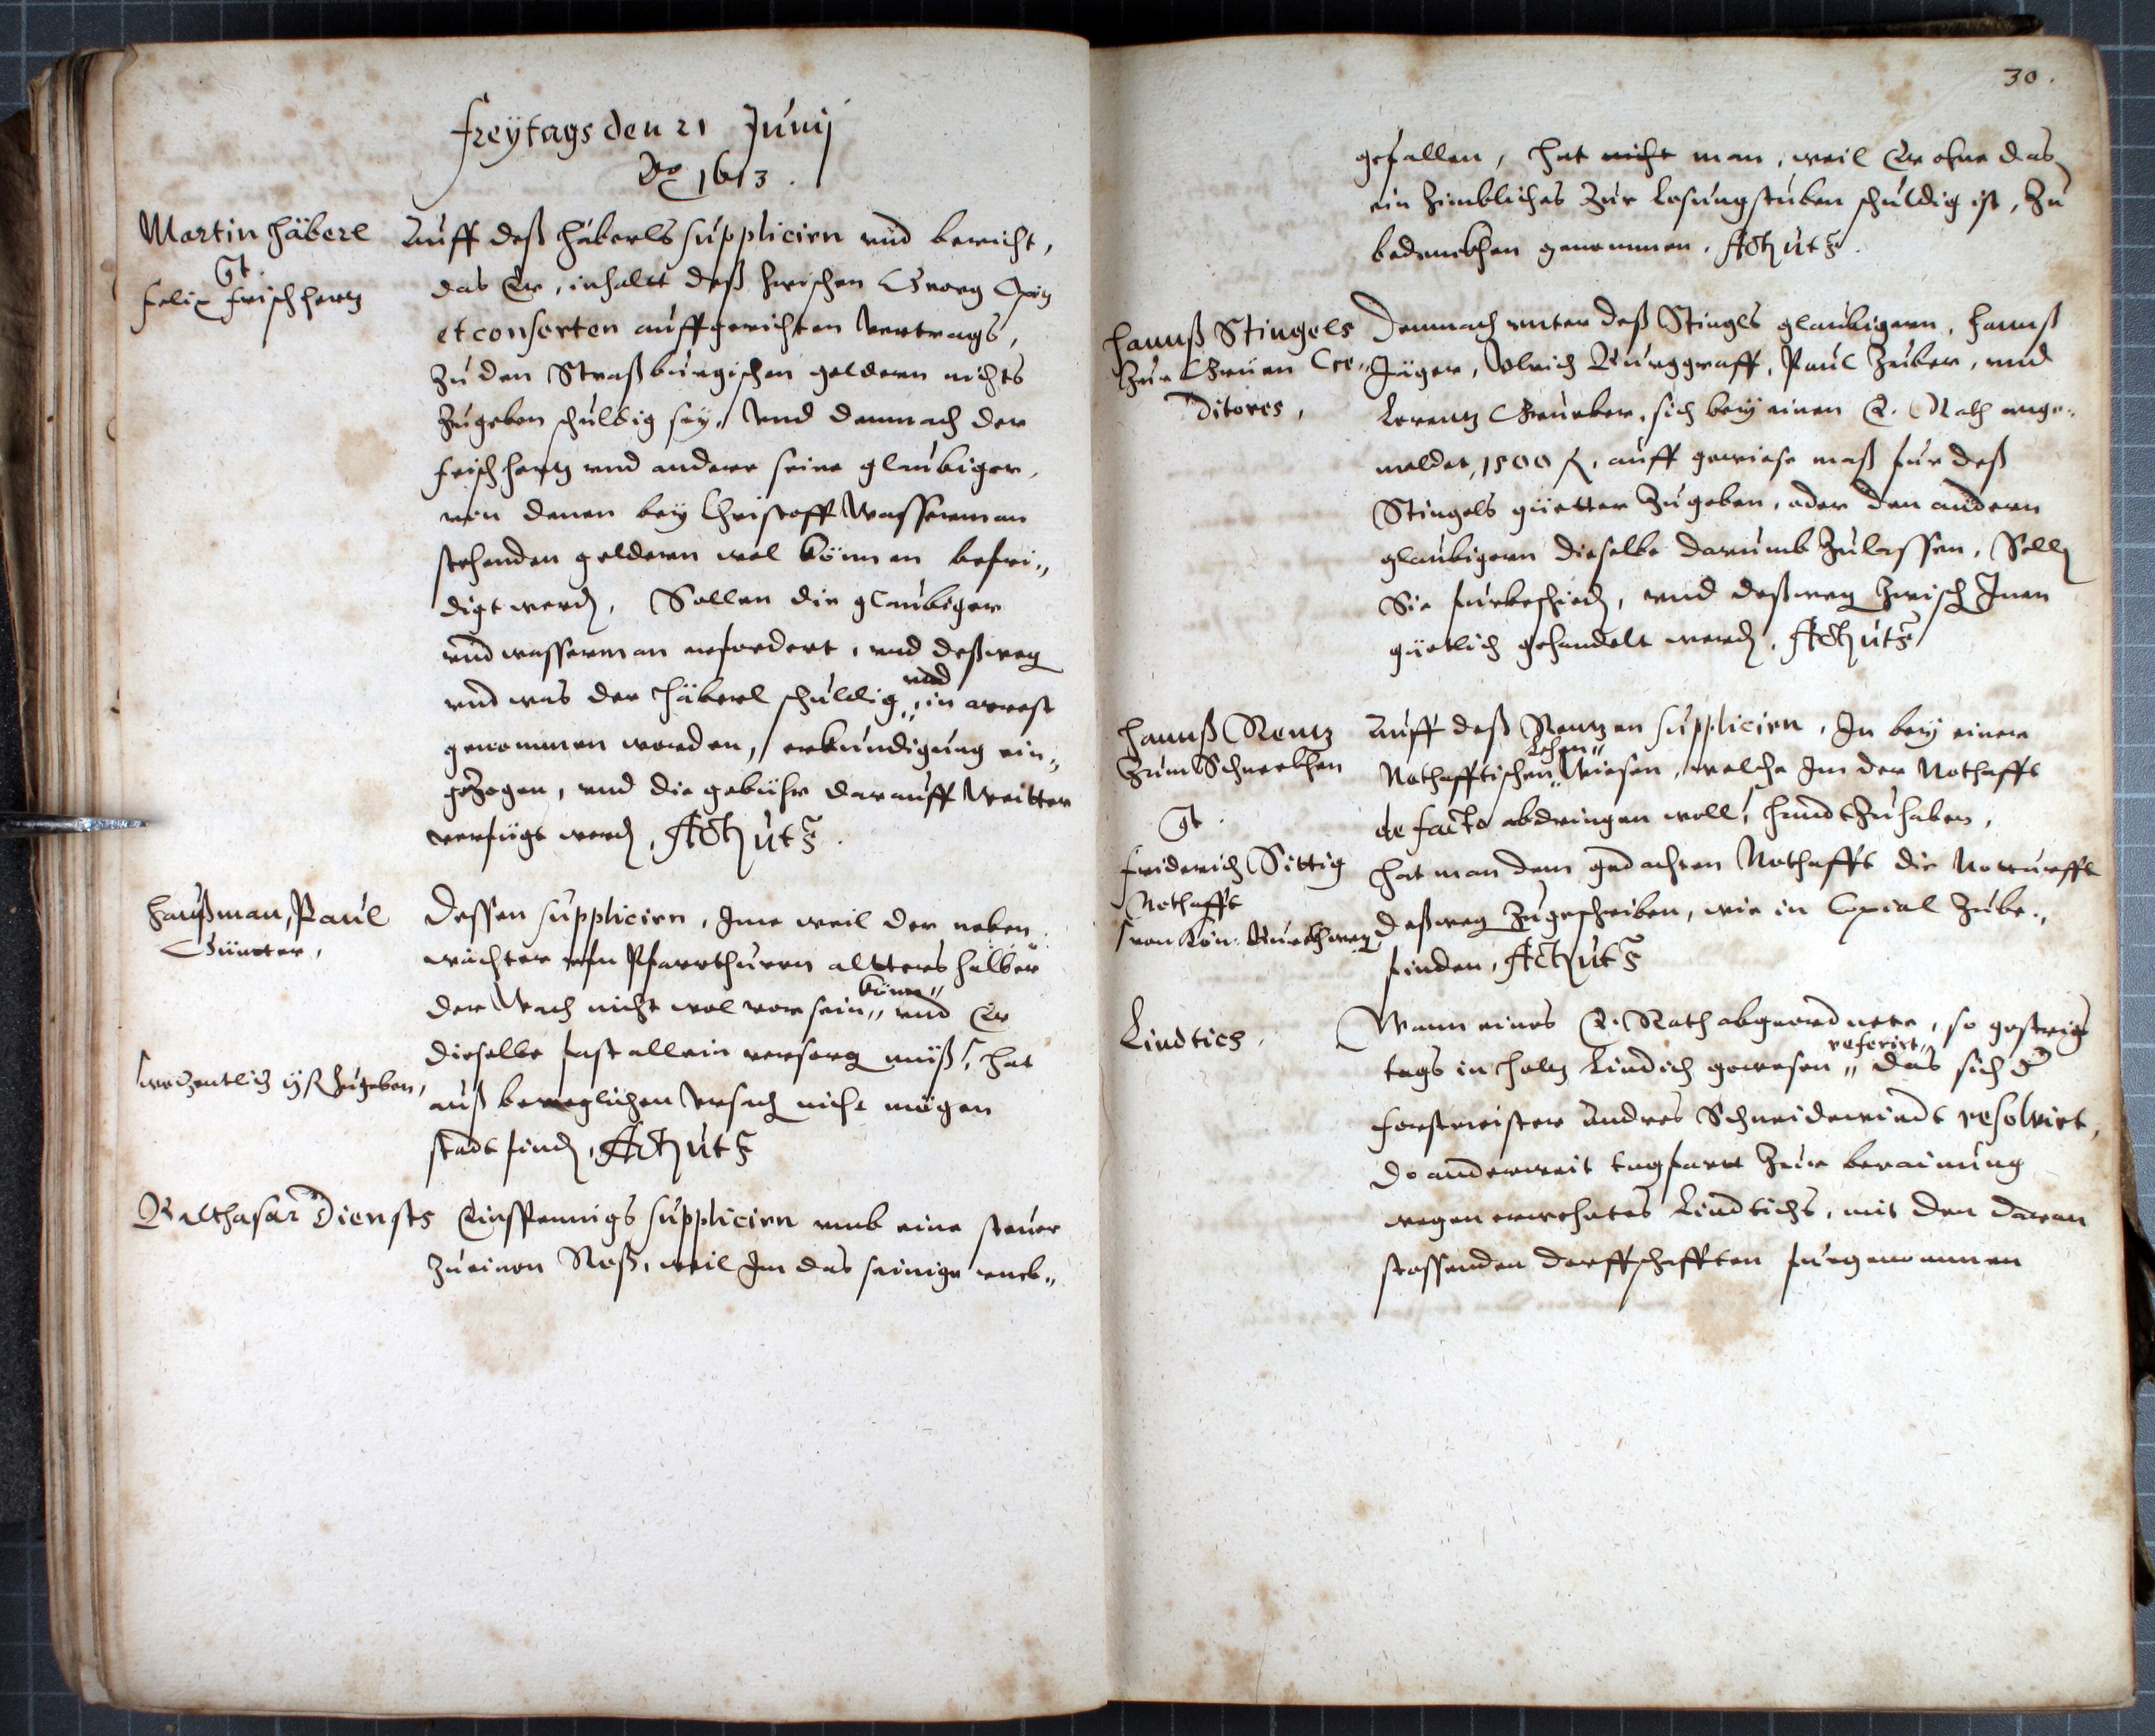 Freÿtags den 21 Junij
Ao 1613.
Martin Häberl
Ct
Felix Frischhertz
Auff deß Häberls supplicirn vnd bericht,
das Er, inhaltt deß zwischen Georg
et consorten auffgerichten Vertrags,
zu den Straßburgischen geldern nichts
zugeben schuldig sey, Vnd demnach der
Frischhertz vnd andere seine glaubiger,
von denen bey Christoff Wasserman
stehenden geldern wol können befri„
digt werdn, Sollen die glaubiger
vnd wasserman erfordert, vnd deßweg
vnd was der Häberl schuldig, vnd in arrest
genommen worden, erkundigung ein„
gezogen, vnd die gebühr darauff weitter
verfügt werdn, Actum ut supra.
Haußman, Paul
Günter,
Dessen supplicirn, Jme weil der neben
wächter vfn Pfarrthurn altters halber
der Wach nicht wol vor sein könn„ vnd Er
dieselbe fast allein versorg müß, hat
auß beweglichen Vrsach nicht mögen
stadt findn, Actum ut supra
wochentlich zugeben,
Balthasar Diensts
Einspennigs supplicirn vmb eine steuer
zu einen Roß, weil Jm das seinige vmb„
30.
gefallen, hat nicht man, weil Er ohne das
ein zimbliches zur Losungstuben schuldig ist, zu
bedenckhen genommen. Actum ut supra.
Hannß Stingels
zur Gruen Cre„
ditores,
Demnach vnter deß Stingls glaubigern, Hannß
Jäger, Vlrich Burggraff, Paul Zuber, vnd
Lorentz Gruber, sich bey einen E. Rath ange„
meldet, 1500 f, auff gewiese maß fur deß
Stingels güetter zugeben, oder den andern
glaubigern dieselbe darumb zulassen, Solln
Sie furbeschiedn, vnd deßweg zwischn Jnen
güetlich gehandelt werdn, Actum ut supra
Hannß Rentz
zum Schneckhen
Ct.
Friderich Sittig
Nothafft
Auff deß Rentzen supplicirn, Jn bey einer
Nothafftischen Lehen„ Wiesen, welche Jm der Nothafft
de facto abdringen woll, handt zuhaben,
hat man dem gedachten Nothafft die Notturfft
deßweg zugeschreiben, wie in Copial zube„
finden, Actum ut supra
Lindtich,
Wann eines E. Rath abgeordnete, so gestrigs
tags in holtz Lindich gewesen, referirt„ das sich d
Forstmeister Andres Schneidewindt resolvirt,
do anderweit tagfart zur berainung
wegen erwehntes Lindtichs, mit den daran
stossenden dorffschafften furgenommen